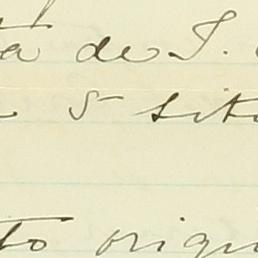 ta de S.
5 sito
to origin